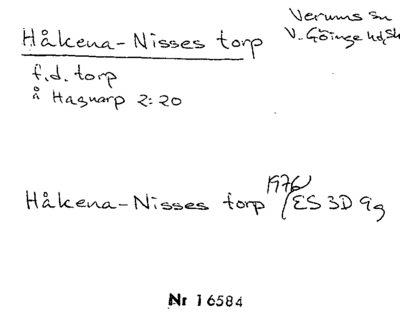 Håkena-Nisses torp
Verums sn
V. Göinge hd, Sk
f.d. torp
å Hagnarp 2:20
Håkena-Nisses torp 1976/ES 3D 9g
Nr 16584